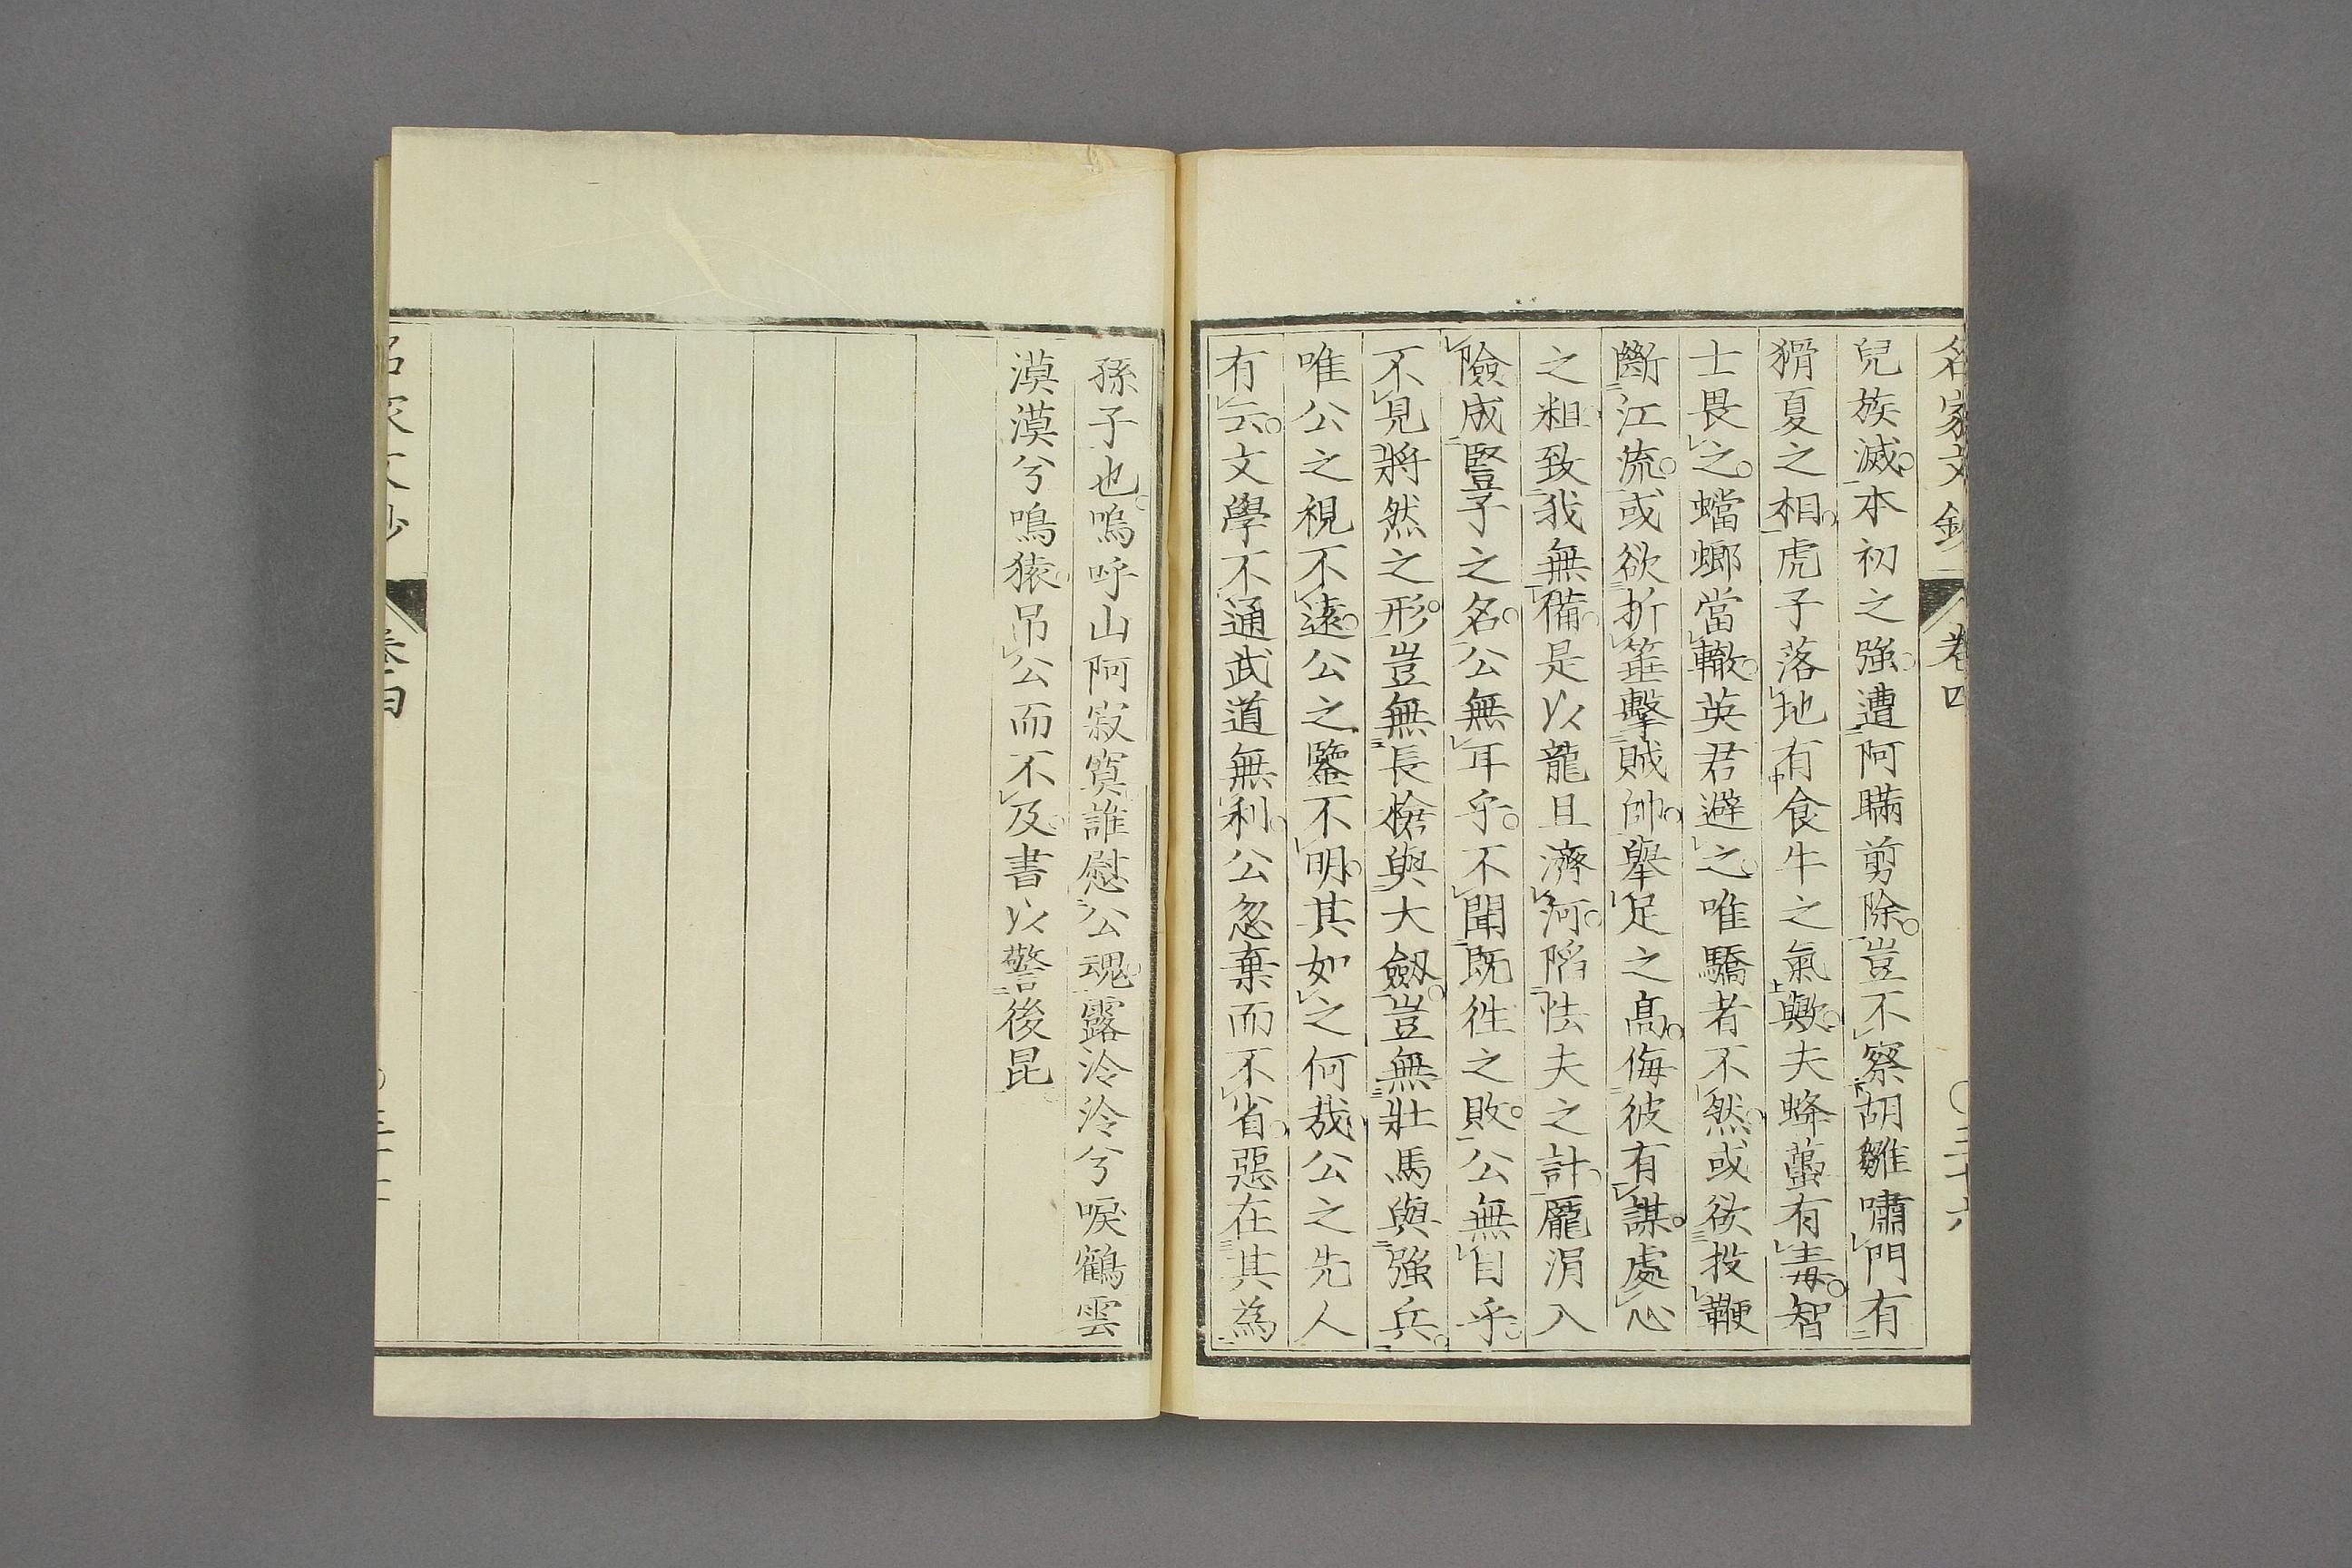 名家文鈔 卷四 〇三十六
兒族滅。本初之強。遭阿瞞剪除。豈不察胡雛嘯門有
猾夏之相。虎子落地有食牛之氣歟。夫蜂蠆有毒。智
士畏之。蟷螂當轍。英君避之。唯驕者不然。或欲投鞭
斷江流。或欲折箠擊賊帥。舉足之高。侮彼有謀。處心
之粗。致我無備。是以龍且濟河。陷怯夫之計。龐涓入
險。成豎子之名。公無耳乎。不聞既徃之敗。公無目乎。
不見將然之形。豈無長槍與大劔。豈無壯馬與強兵。
唯公之視不遠。公之鑒不明。其如之何哉。公之先人
有云。文學不通。武道無利。公忽棄而不省。惡在其為
孫子也。嗚呼山阿寂寞誰慰公魂。露泠泠兮唳鶴。雲
漠漠兮鳴猿。吊公而不及。書以警後昆。
名家文鈔 卷四